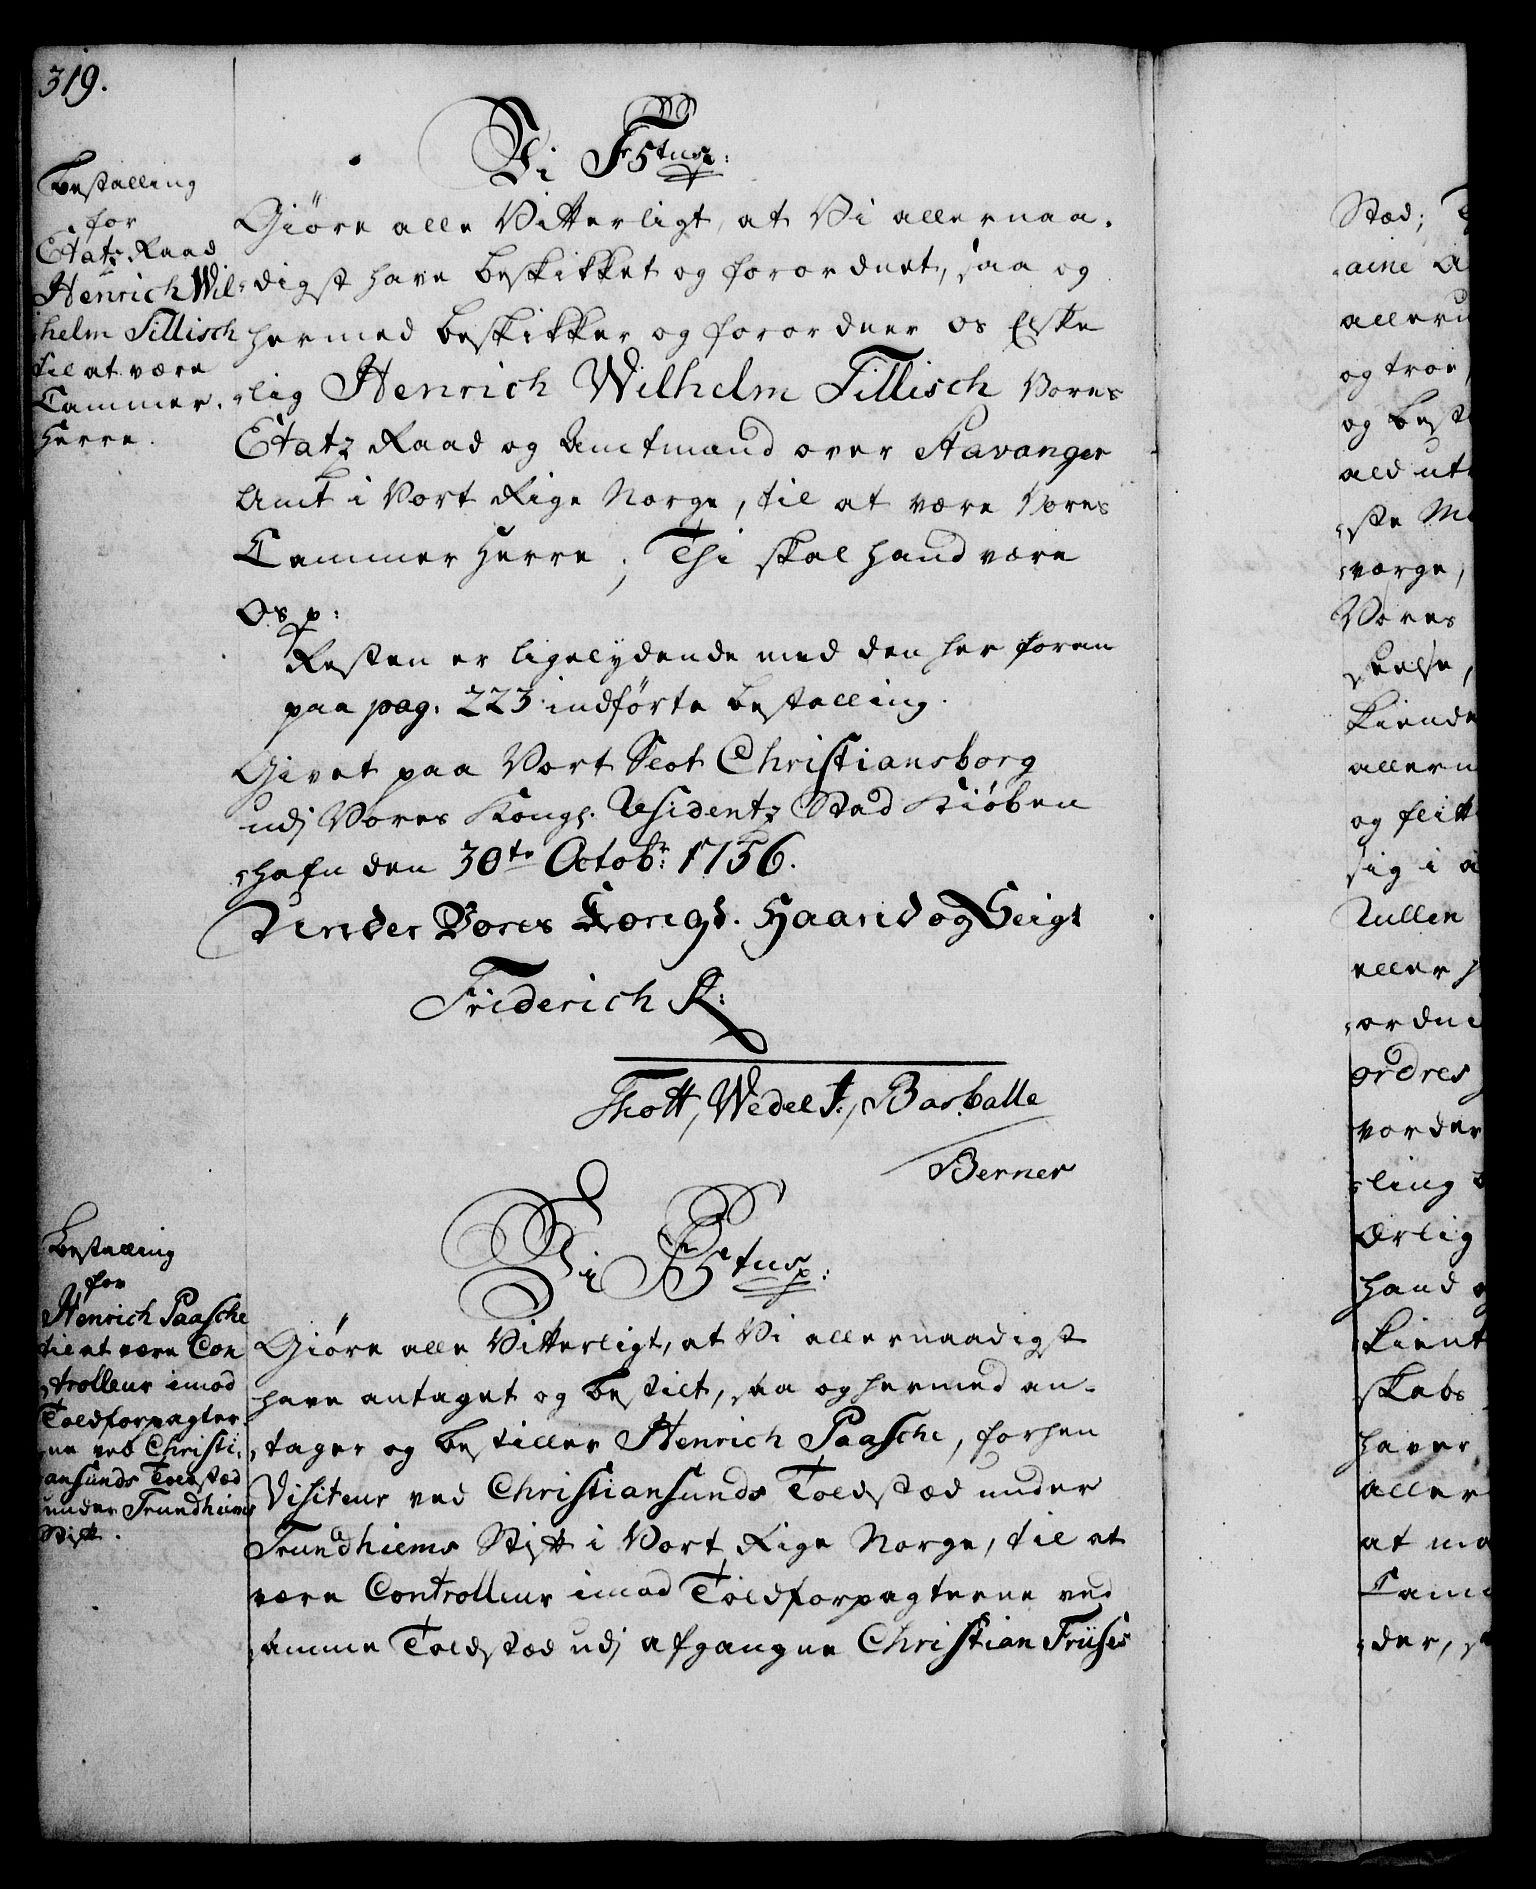 319.
Bestalling
for
Etatz Raad
Henrich Wil-
helm Tillisch
til at være
Cammer-
Herre.
Vi Fr 5tus p:
Giöre alle Vitterligt, at Vi allernaa-
digst have beskikket og forordnet, saa og
hermed beskikker og forordner os Elske
-lig Henrich Wilhelm Tillisch Vores
Etatz Raad og Amtmand over Stavanger
Amt i Vort Rige Norge, til at være Vores
Cammer Herre; Thi skal hand være
Os p:
Resten er ligelydende med den her foran
paa pag. 223 indförte bestalling.
Givet paa Vort Slot Christiansborg
udj Vores Kongl. Residentz Stad Kiöben
-hafn den 30te Octobr: 1756.
Under Vores Kongl. Haand og Seigl
Friderich R:
Thott, Wedel F:, Barballe
Berner
Bestalling
for
Henrich Paasche
til at være Con
-trolleur imod
Toldforpagter-
-ne ved Christi-
ansunds Toldstæd
under Trundhiems
Stift.
Vi Fr 5tus p:
Giöre alle Vitterligt, at Vi allernaadigst
have antaget og bestilt, saa og hermed an-
-tager og bestiller Henrich Paasche, forhen
Visiteur ved Christiansunds Toldstæd under
Trundhiems Stift i Vort Rige Norge, til at
være Controlleur imod Toldforpagterne ved
samme Toldstæd udj afgangne Christian Friises
Stæd;
aine
alleru
og troe,
og best
ald
-ste
-værge,
Vores
-seelse,
kiende
allern
og flitt
sig i
Rullen
eller
-ordni
ordres
vorder
-ling
Ærlig
hand
-kient
skabs
haver
aller
at
Cam
-der,